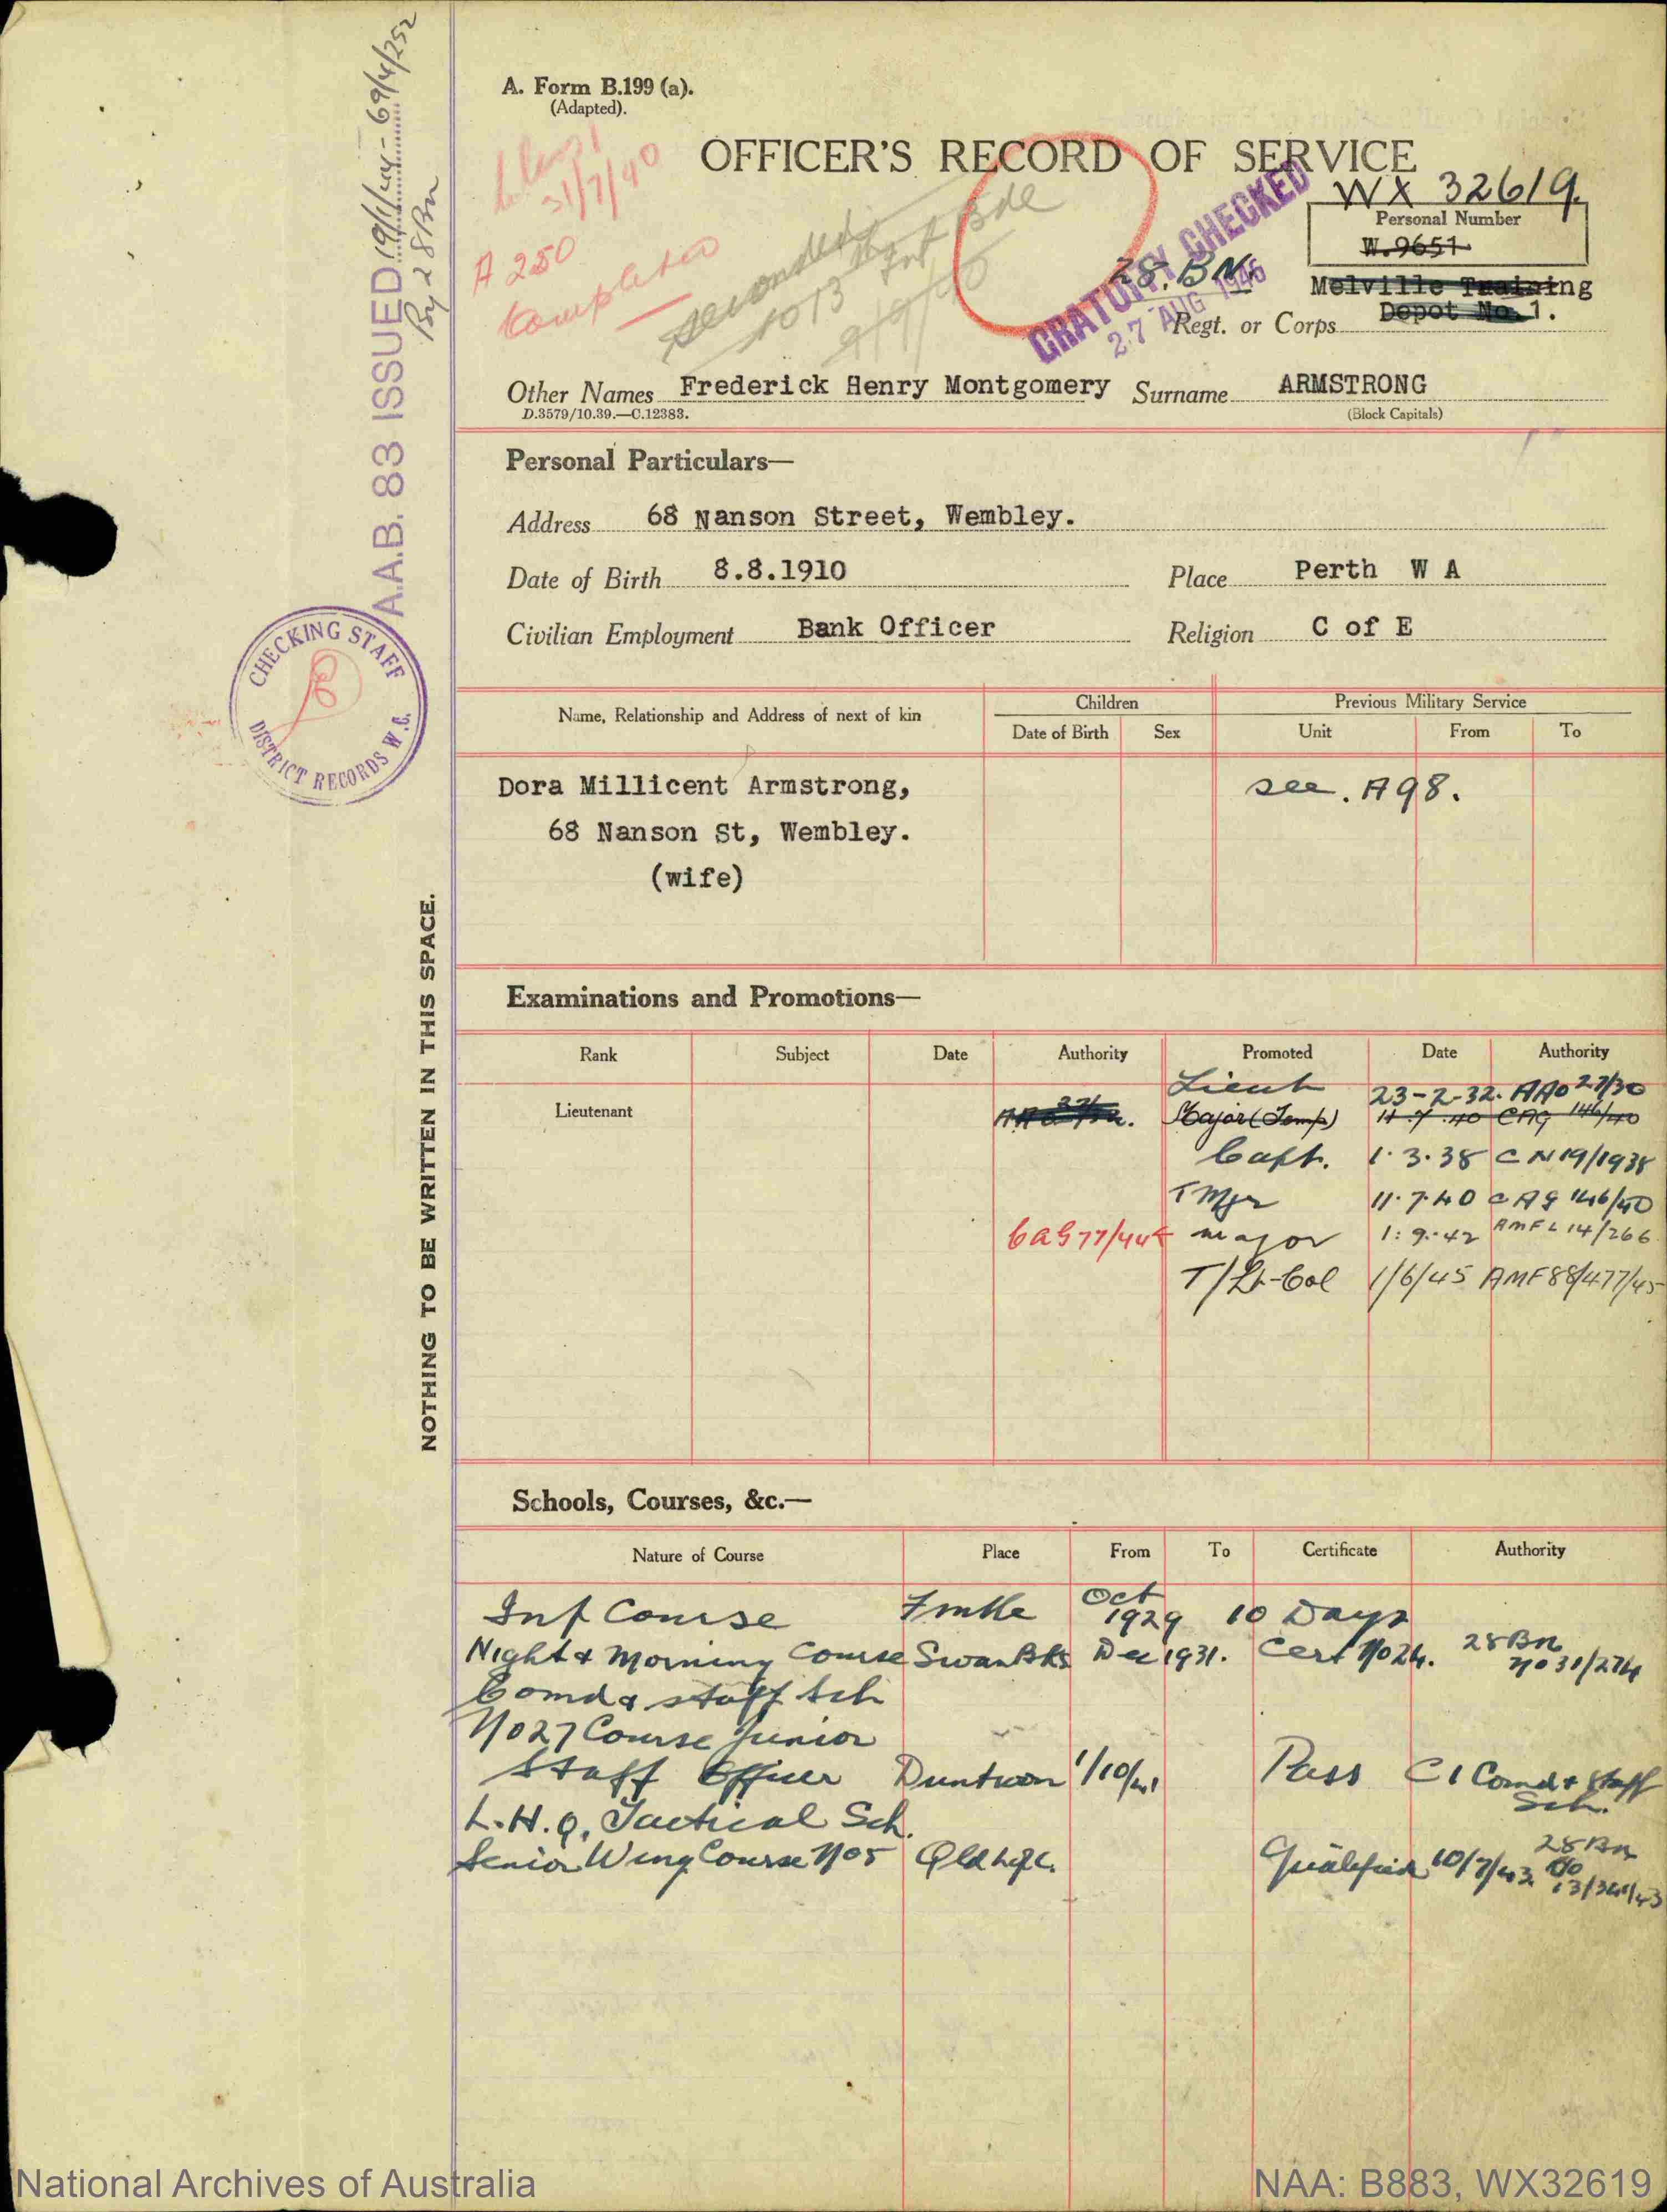 A. Form B.199 (a).
(Adapted).
OFFICER'S RECORD OF SERVICE
31/7/40
A 250
Completed
seconded
to 13 Inf Bde
9/9/40
GRATUITY CHECKED
27 AUG 1946
WX 32619.
Personal Number
W.9651
28.BN.
Melville Training
Regt. or Corps Depot No. 1.
Other Names Frederick Henry Montgomery Surname ARMSTRONG
D.3579/10.39.—C.12383.
(Block Capitals)
A.A.B. 83 ISSUED 19/1/44 - 69/4/252
By 28 Bn
CHECKING STAFF
DISTRICT RECORDS W.C.
NOTHING TO BE WRITTEN IN THIS SPACE.
Personal Particulars—
Address 68 Nanson Street, Wembley.
Date of Birth 8.8.1910 Place Perth W A
Civilian Employment Bank Officer Religion C of E
Name, Relationship and Address of next of kin Children Previous Military Service
Date of Birth Sex Unit From To
Dora Millicent Armstrong, see. A98.
68 Nanson St, Wembley.
(wife)
Examinations and Promotions—
Rank Subject Date Authority Promoted Date Authority
Lieut 23-2-32. AAO 27/30
Lieutenant Major (Temp) 11.7.40 CAG 146/40
Capt. 1.3.38 CN19/1938
T Mjr 11.7.40 CAG 146/40
CAG 77/445 major 1:9.42 AMFL 14/266
T/Lt-Col 1/6/45 AMF88/477/45
Schools, Courses, &c.—
Nature of Course Place From To Certificate Authority
Inf Course Fmtle Oct 1929 10 Days
Night & Morning Course Swan Bks Dec 1931. Cert No 24. 28 Bn No 31/274
Comd & Staff Sch
No 27 Course Junior
Staff Officer Duntroon 1/10/41 Pass C I Comd & Staff Sch.
L.H.Q. Tactical Sch.
Senior Wing Course No 5 Qld Qualified 10/7/43 28 Bn
13/341/43
National Archives of Australia
NAA: B883, WX32619